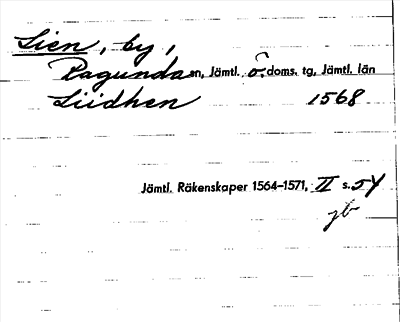 Lien, by,
Ragunda sn, Jämtl. ö. doms. tg, Jämtl. län
Liidhen 1568
Jämtl. Räkenskaper 1564–1571, II s. 54